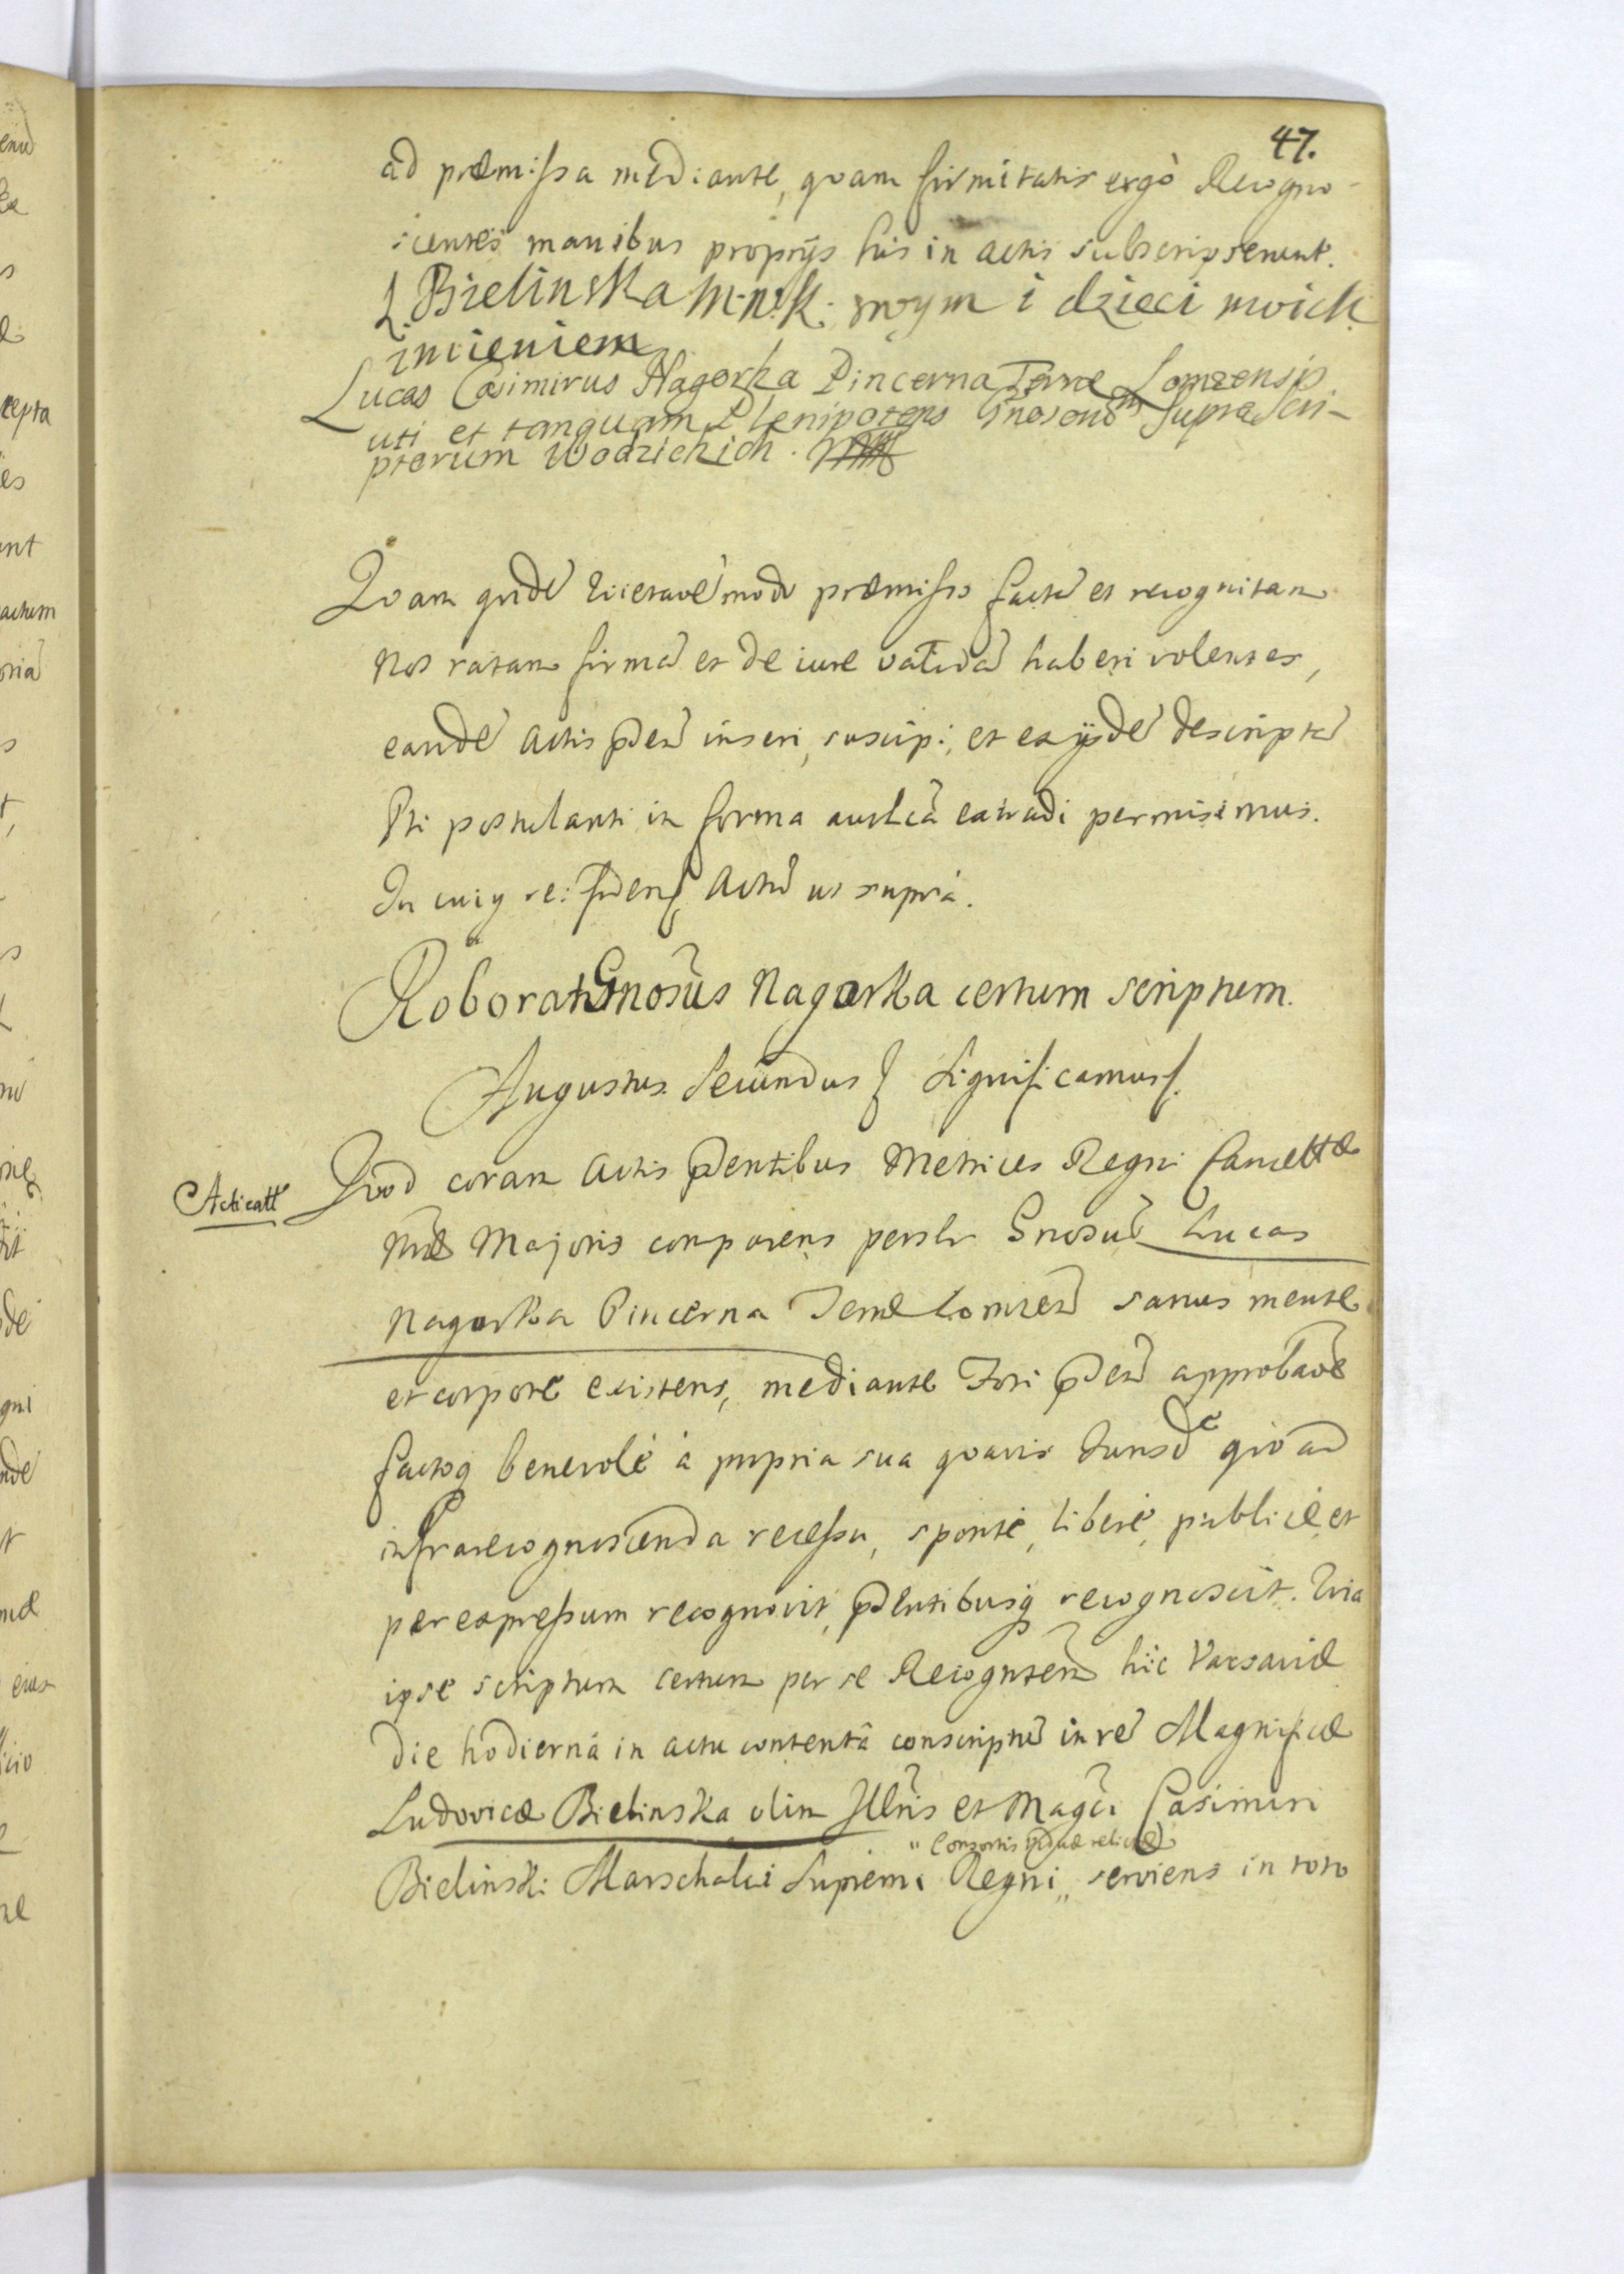 47.
ad præmissa mediante, quam firmitatis ergò Recogno-
scentes manibus proprijs his in actis subscripserunt.
L Bielinska M. n. k. swym i dzieci moich
imieniem
Lucas Casimirus Nagorka Pincerna Terræ Lomzensis
uti et tanquam Plenipotens Gnosorum supra scri-
ptorum Wodzickich.
Quam quidẽ modo præmisso factã et recognitam
Nos ratam firmã et de iure validã haberi volentes,
eandẽ Actis pñtibus inseri, suscipi, et ex ijsdẽ descriptã
Pti postulanti in forma auth̃cã extradi permisimus.
In cuiq rei fidem Actũ ut supra.
Roborat Gnosus Nagorka certum scriptum.
Augustus Secundus Significamus
Acticatt
Quod coram Actis pñtibus Metrices Regni Cancellræ
Nræ Majoris comparens persłr Gnosus Lucas
Nagorka Pincerna Terræ Lomzeñ sanus mente
et corpore existens, mediante Fori pñtis approbaõe
factoq benevolè à propria sua quavis Jurisdẽ quo ad
infrarecognoscenda recessu, sponte, liberè, publicè et
per expressum recognovit, pñtibusq recognoscit. Quia
ipse scriptum certum per se Recogntem hic Varsaviæ
die hodierna in actu contentâ conscriptũ in rẽ Magnificæ
Ludovicæ Bielinska olim Illris et Magci Casimiri
" Consortis relictæ
Bielinski Marschalci Supremi Regni " serviens in toto